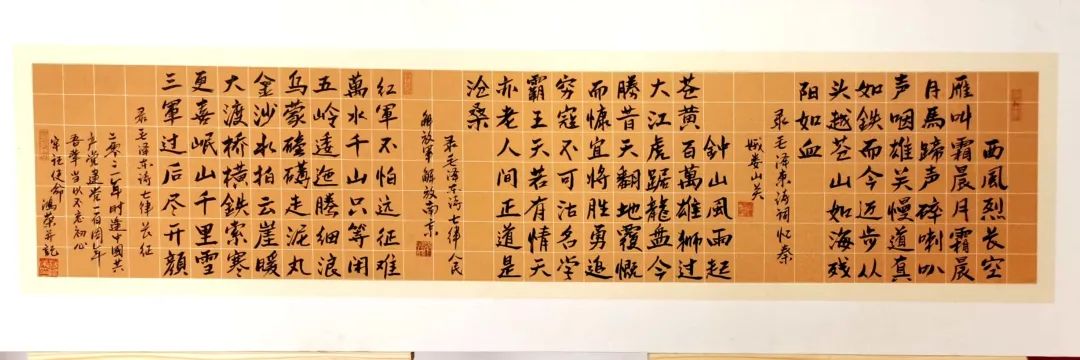 西風烈长空
雁叫霜晨月霜晨
月馬蹄声碎喇叭
声咽雄关慢道真
如鉄而今迈步从
头越苍山如海残
阳如血
录毛泽東诗词忆秦
娥娄山关
鈡山風雨起
苍黄百萬雄狮过
大江虎踞龍盘今
腾昔天翻地覆慨
而慷宜将胜勇追
穷寇不可沽名学
霸王天若有情天
亦老人间正道是
沧桑
录毛泽东诗七律人民
解放军解放南京
红軍不怕远征难
萬水千山只等闲
五岭逶迤腾细浪
乌蒙磅礴走泥丸
金沙水拍云崖暖
大渡桥横鉄索寒
更喜岷山千里雪
三軍过后尽开顔
录毛泽东诗七律长征
二零二一年时逢中國共
产党建党一百周年
吾辈当以不忘初心
牢记使命